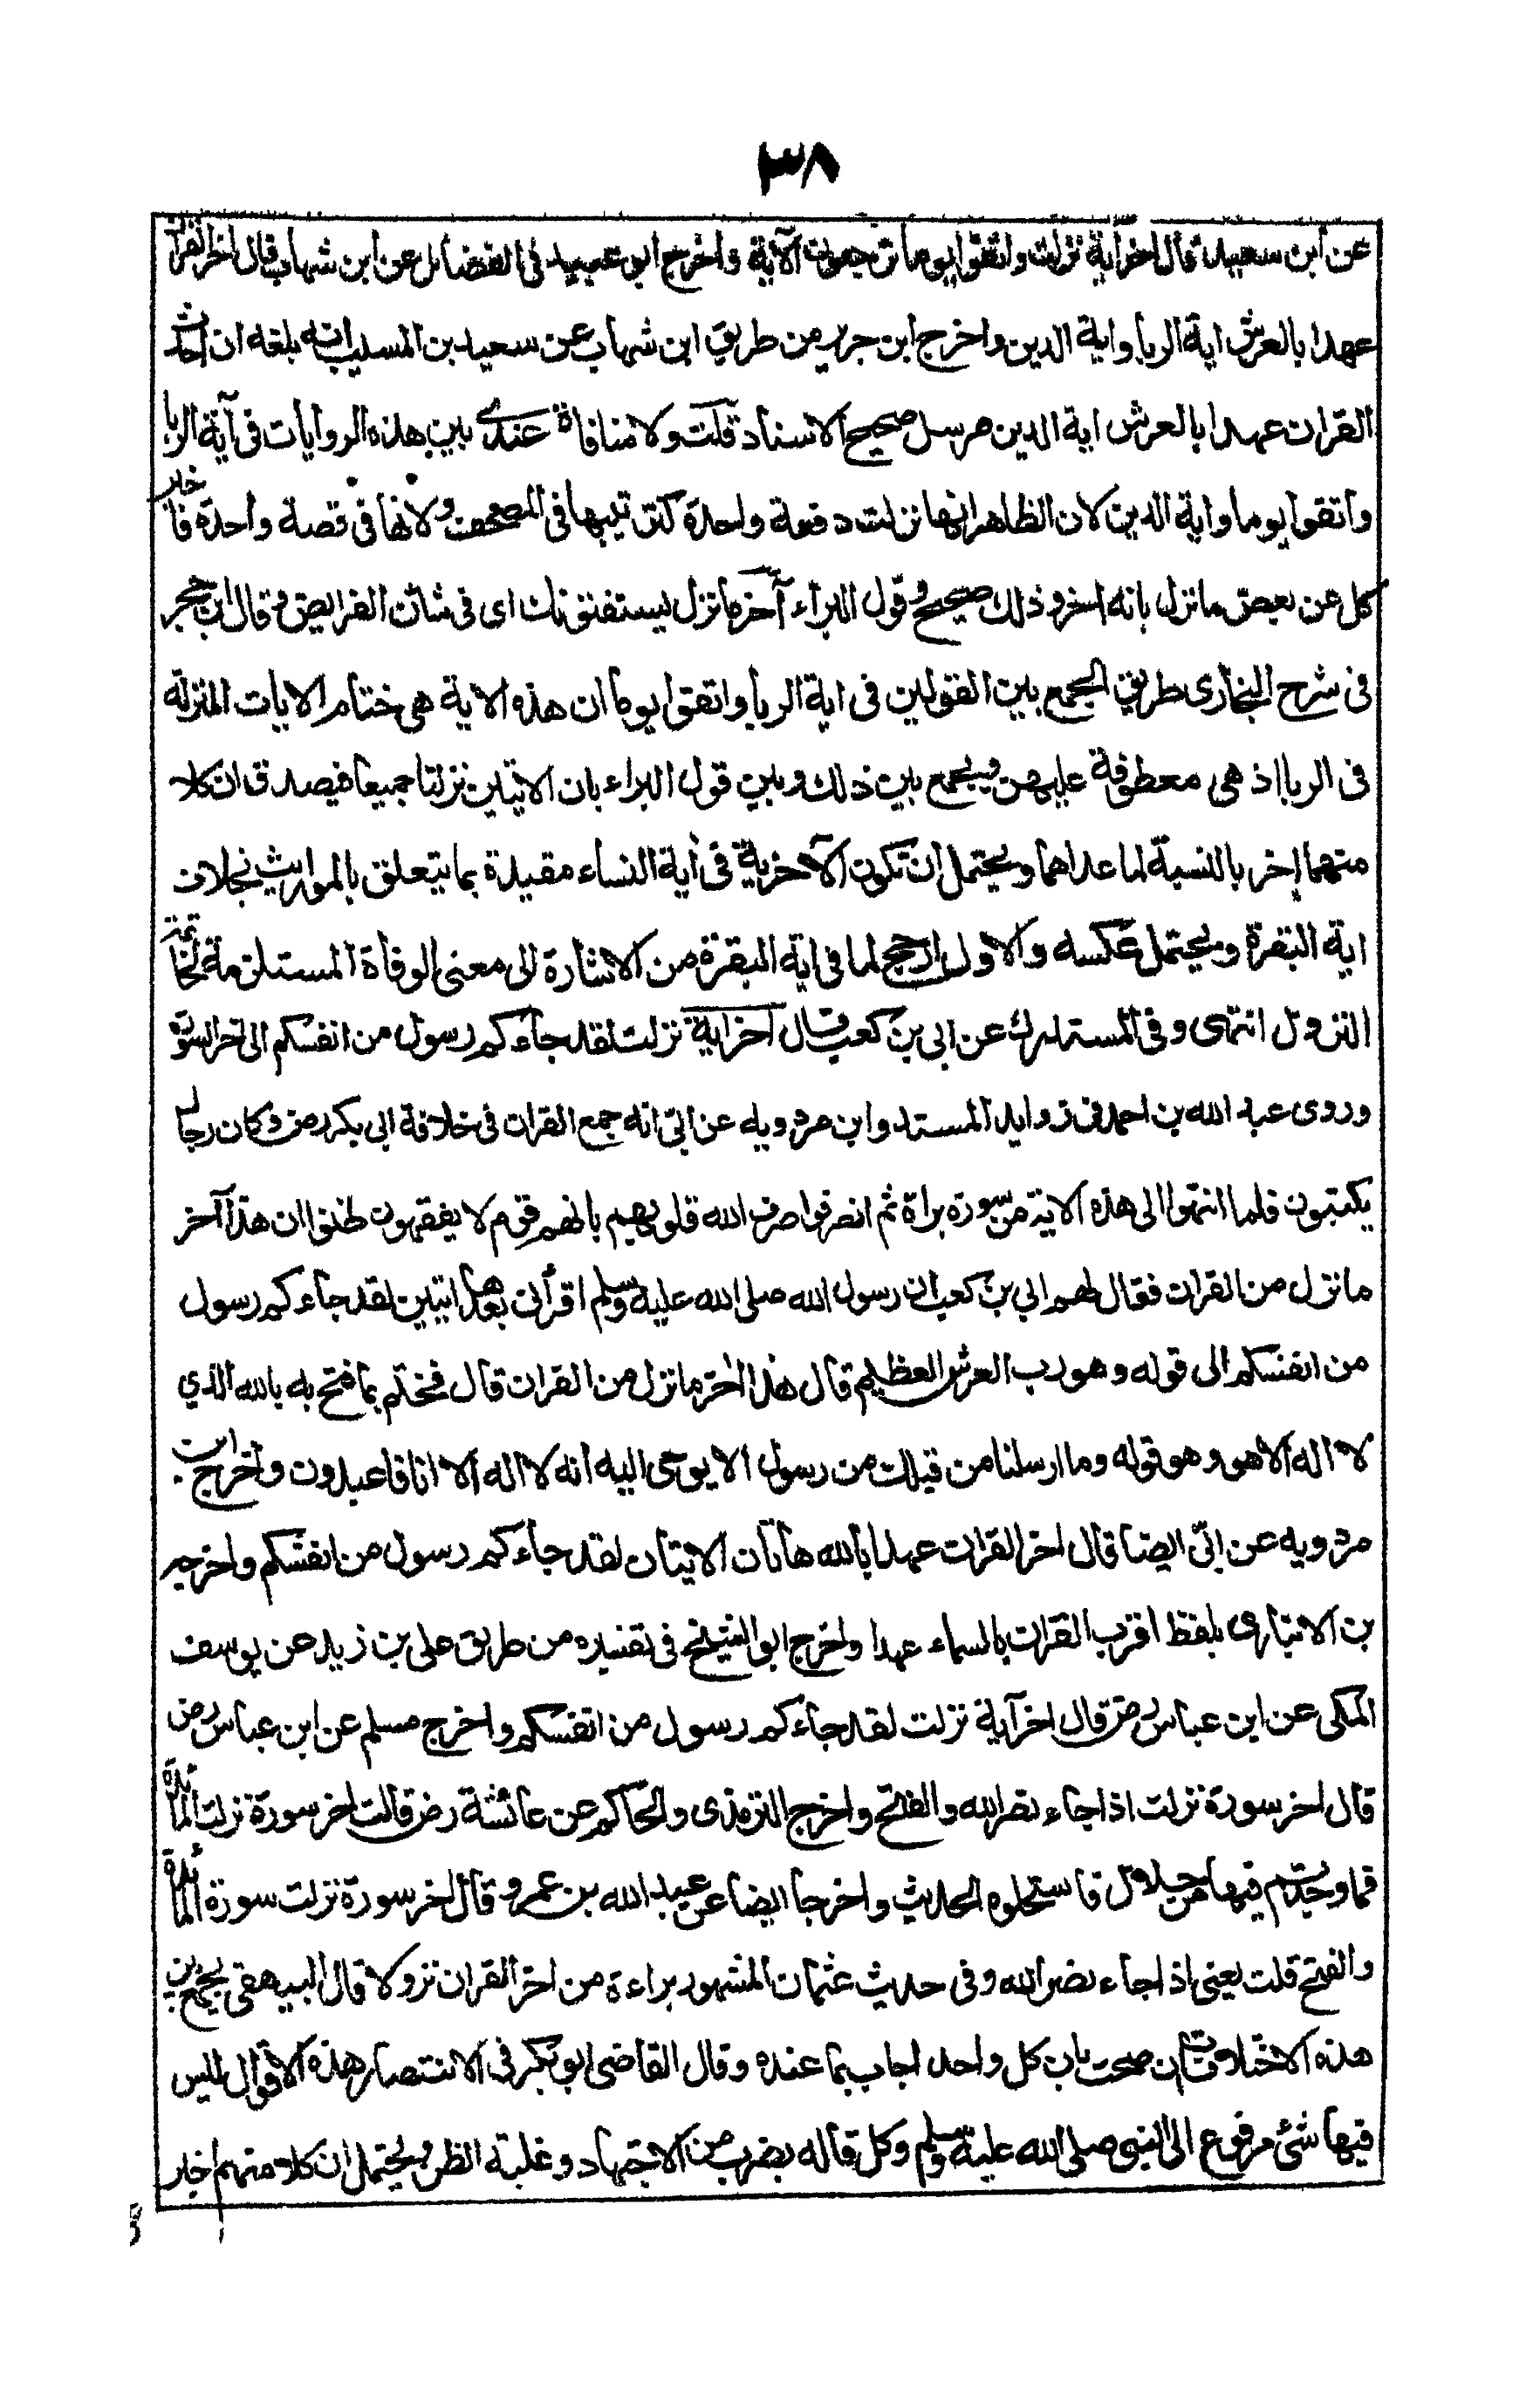 ٣٨
عن ابن سعيد قال اخر آية نزلت واتقوا يوما ترجعون الآية واخرج ابو عبيد فى الفضائل عن ابن شهاب قال اخر القران
عهدا بالعرش اية الربا واية الدين واخرج ابن جرير من طريق ابن شهاب عن سعيد بن المسيب انه بلغه ان احدث
القران عهدا بالعرش اية الدين مرسل صحيح الاسناد قلت ولا منافاة عندى بين هذه الروايات فى آية الربا
واتقوا يوما واية الدين لان الظاهر انها نزلت دفعة واحدة كترتيبها فى المصحف ولانها فى قصة واحدة فاخبر
كل عن بعض ما نزل بانه اخر وذلك صحيح وقول البراء آخر ما نزل يستفتونك اى فى شان الفرايض وقال ابن حجر
فى شرح البخارى طريق الجمع بين القولين فى اية الربا واتقوا يوما ان هذه الاية هى ختام الايات المنزلة
فى الربا اذ هى معطوفة عليهن ويجمع بين ذلك وبين قول البراء بان الايتين نزلتا جميعا فيصدق ان كلا
منهما اخر بالنسبة لما عداهما ويحتمل ان تكون الآخرية فى اية النساء مقيدة بما يتعلق بالمواريث بخلاف
اية البقرة ويحتمل عكسه والاول ارجح لما فى اية البقرة من الاشارة الى معنى الوفاة المستلزمة لخاتمة
النزول انتهى وفى المستدرك عن ابى بن كعب قال اخر اية نزلت لقد جاءكم رسول من انفسكم الى اخر السورة
وروى عبد الله بن احمد فى زوايد المسند وابن مردويه عن ابى انه جمع القران فى خلافة ابى بكر رض وكان رجال
يكتبون فلما انتهوا الى هذه الاية من سورة براة ثم انصرفوا صرف الله قلوبهم بانهم قوم لا يفقهون ظنوا ان هذا آخر
ما نزل من القران فقال لهم ابي بن كعب ان رسول الله صلى الله عليه وسلم اقرأنى بعدها ايتين لقد جاءكم رسول
من انفسكم الى قوله وهو رب العرش العظيم قال هذا اخر ما نزل من القران قال فختم بما فتح به بالله الذي
لا اله الا هو وهو قوله وما ارسلنا من قبلك من رسول الا يوحى اليه انه لا اله الا انا فاعبدون واخرج ابن
مردويه عن ابى ايضا قال اخر القران عهدا بالله هاتان الايتان لقد جاءكم رسول من انفسكم واخرجه
بن الانبارى بلفظ اقرب القران بالسماء عهدا واخرج ابو الشيخ فى تفسيره من طريق على بن زيد عن يوسف
المكى عن ابن عباس رض قال اخر آية نزلت لقد جاءكم رسول من انفسكم واخرج مسلم عن ابن عباس رض
قال اخر سورة نزلت اذا جاء نصر الله والفتح واخرج الترمذى والحاكم عن عائشة رض قالت اخر سورة نزلت المائدة
فما وجدتم فيها من حلال فاستحلوه الحديث واخرجا ايضا عن عبد الله بن عمرو قال اخر سورة نزلت سورة المائدة
والفتح قلت يعنى اذا جاء نصر الله وفى حديث عثمان المشهور براءة من اخر القران نزولا قال البيهقى يجمع بين
هذه الاختلافات ان صحت بان كل واحد اجاب بما عنده وقال القاضى ابو بكر فى الانتصار هذه الاقوال ليس
فيها شئ مرفوع الى النبى صلى الله عليه وسلم وكل قاله بضرب من الاجتهاد وغلبة الظن ويحتمل ان كلا منهم اخبر